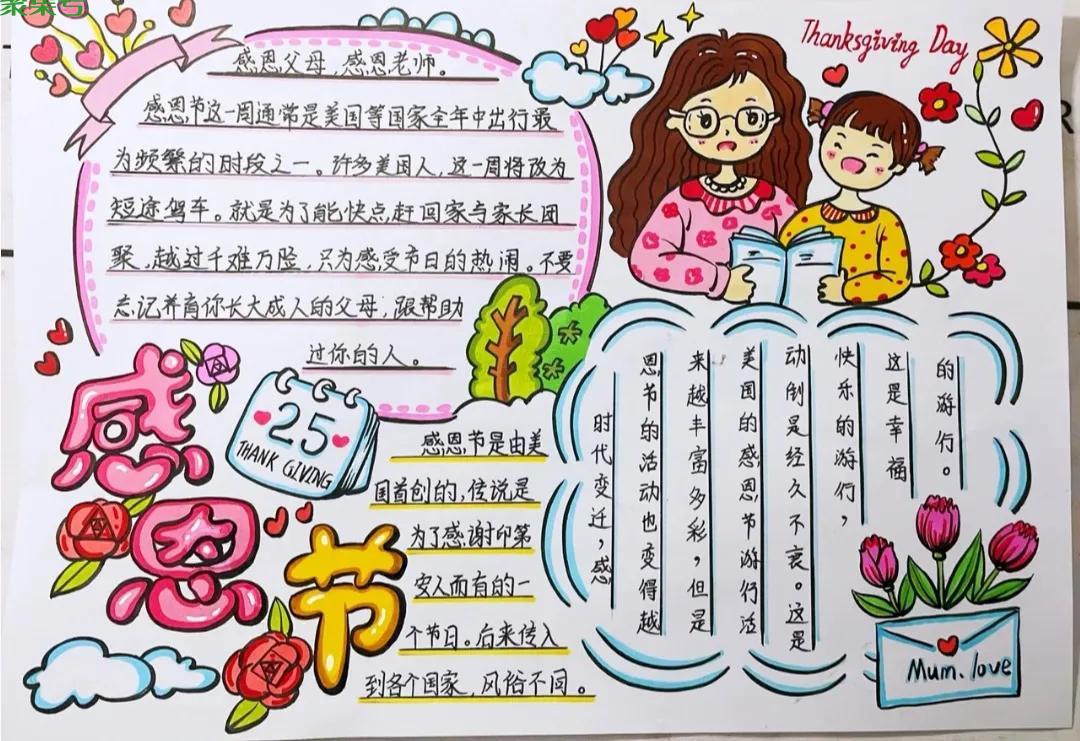 Thanksgiving Day
感恩父母，感恩老师。
感恩节这一周通常是美国等国家全年中出行最
为频繁的时段之一。许多美国人，这一周将改为
短途驾车。就是为了能快点赶回家与家长团
聚，越过千难万险，只为感受节日的热闹。不要
忘记养育你长大成人的父母，跟帮助
过你的人。
感恩节
25
THANK GIVING
感恩节是由美
国首创的，传说是
为了感谢印第
安人而有的一
个节日。后来传入
到各个国家，风俗不同。
时代变迁，感
恩节的活动也变得越
来越丰富多彩，但是
美国的感恩节游行活
动倒是经久不衰。这是
快乐的游行，
这是幸福
的游行。
Mum. love